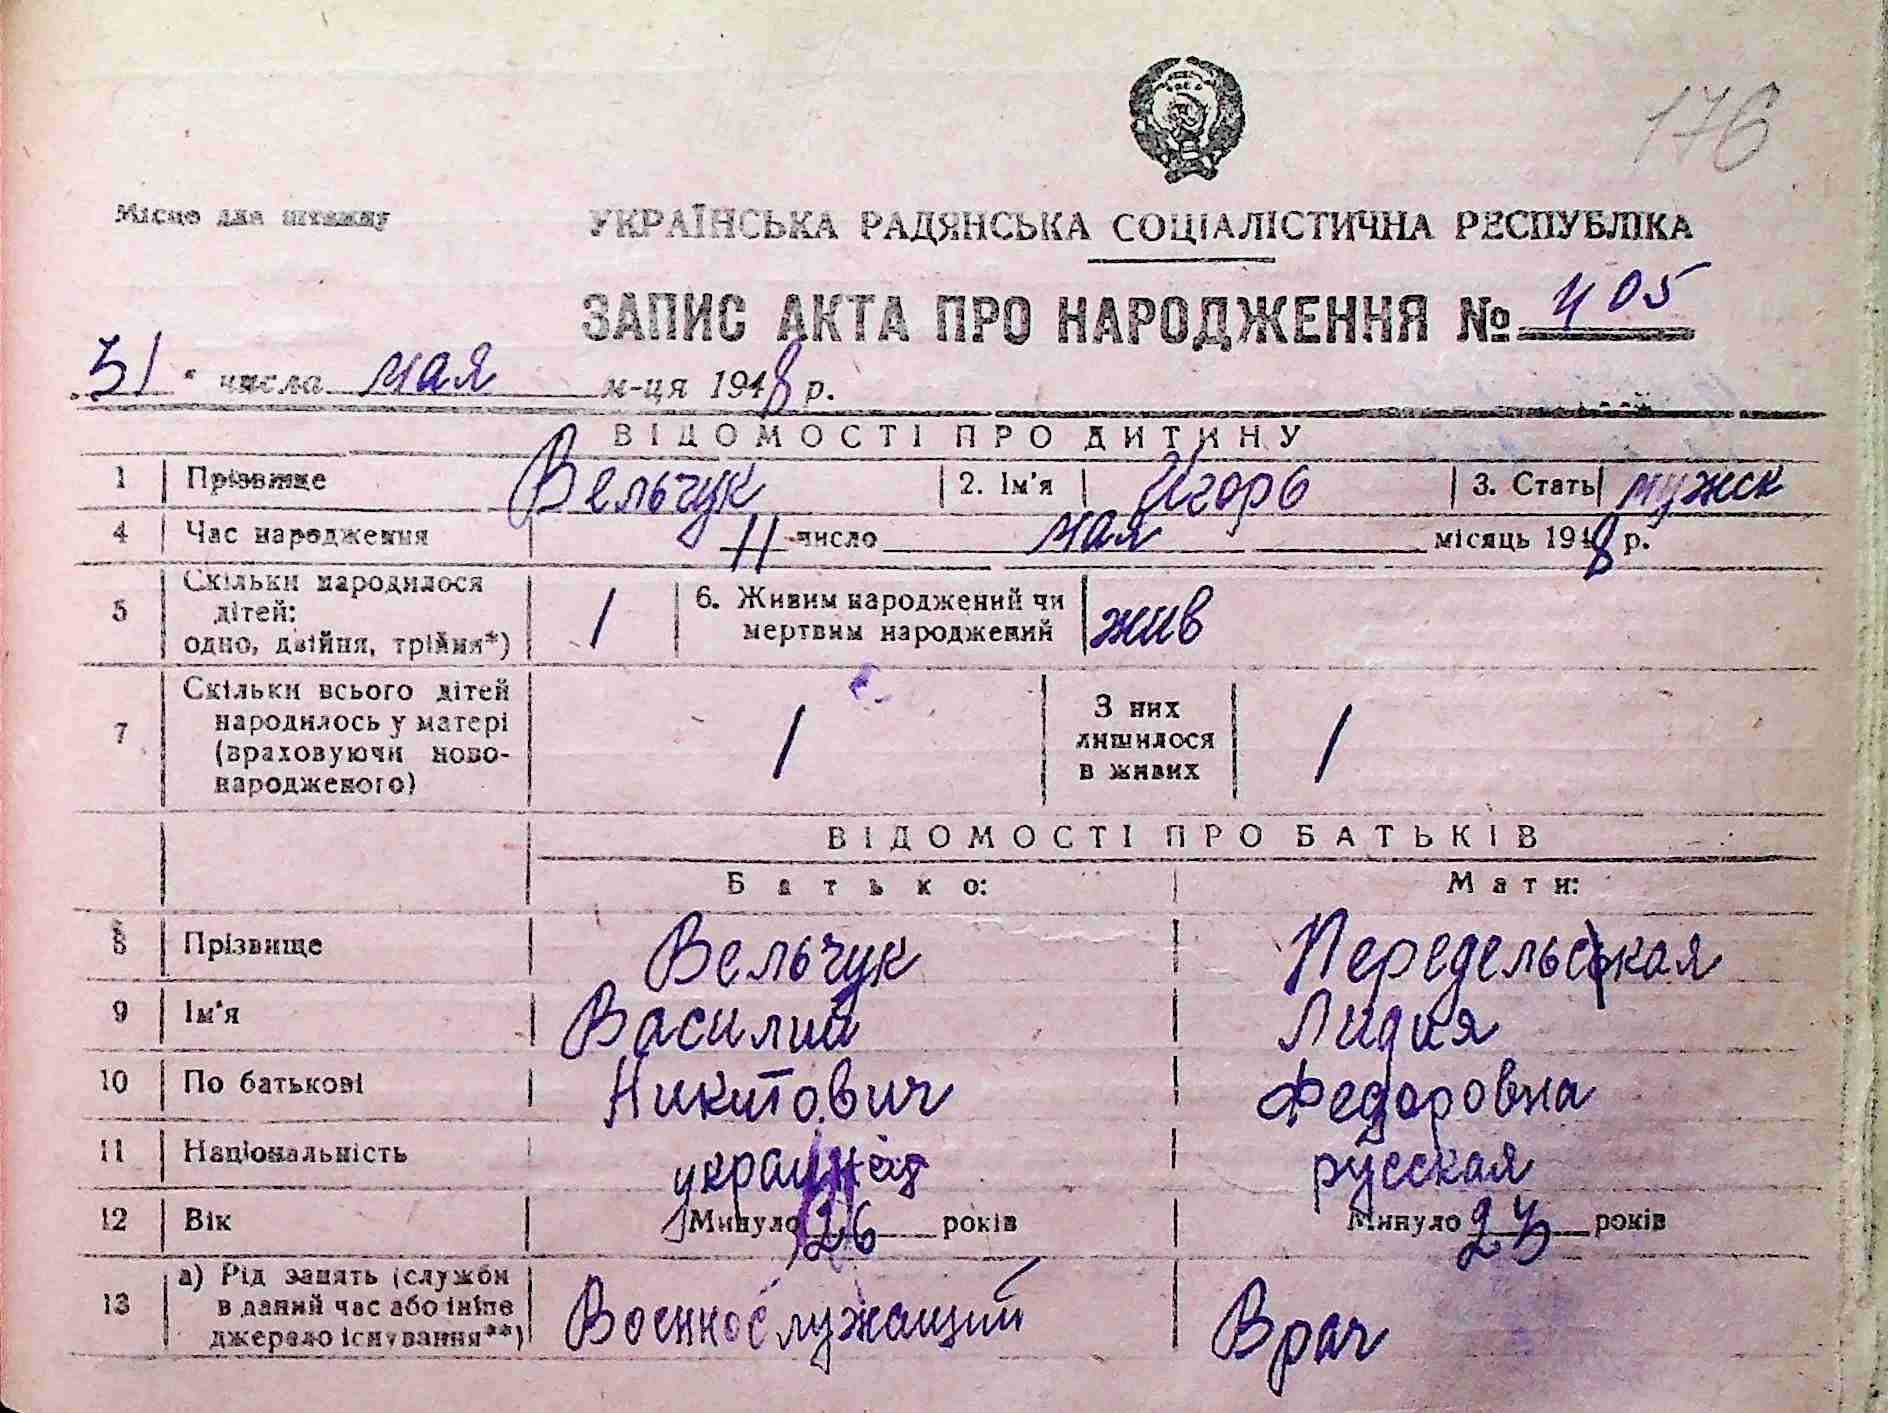 176
Місце для штампу
УКРАЇНСЬКА РАДЯНСЬКА СОЦІАЛІСТИЧНА РЕСПУБЛІКА
ЗАПИС АКТА ПРО НАРОДЖЕННЯ № 405
31 " числа мая м-ця 1948 р.
ВІДОМОСТІ ПРО ДИТИНУ
1 Прізвище Вельчук 2. Ім'я Игорь 3. Стать мужск
4 Час народження 11 число мая місяць 1948 р.
5 Скільки народилося дітей: одно, двійня, трійня*) 1 6. Живим народжений чи мертвим народжений жив
7 Скільки всього дітей народилось у матері (враховуючи ново-народженого) 1 З них лишилося в живих 1
ВІДОМОСТІ ПРО БАТЬКІВ
Батько: Мати:
8 Прізвище Вельчук Передельская
9 Ім'я Василий Лидия
10 По батькові Никитович Федоровна
11 Національність украинец русская
12 Вік Минуло 26 років Минуло 23 років
13 а) Рід занять (служби в даний час або інше джерело існування**) Военнослужащий Врач